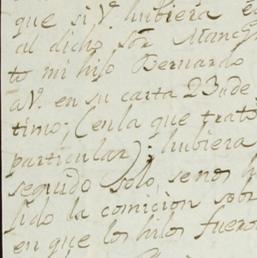 que si V. hubiera
al dicho Sor. Man
te mi hijo Bernardo
a V. en su carta 23 de
timo; (en la que trato
particular); hubiera
seguido solo, se nos h
sido la comicion sobr
en que los hilos fuero